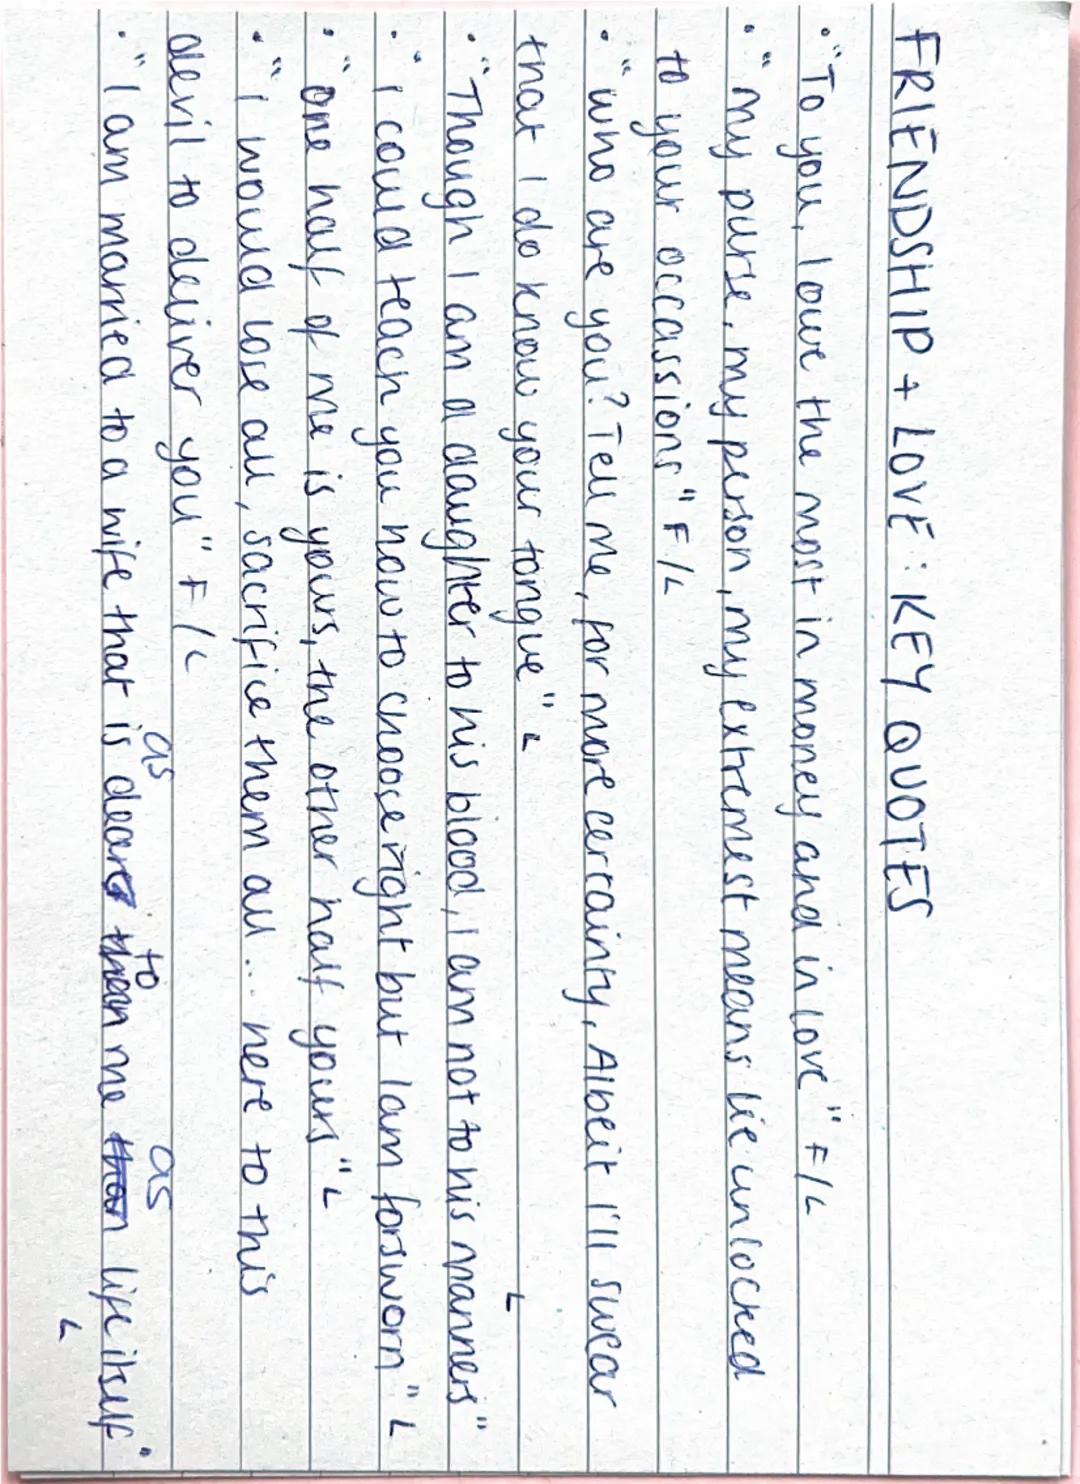 FRIENDSHIP + LOVE: KEY QUOTES
• "To you, I owe the most in money and in love" F/L
• "my purse, my person, my extremest means lie unlocked
to your occassions" F/L
• "who are you? Tell me, for more certainty, Albeit I'll swear
that I do know your tongue" L
• "Though I am a daughter to his blood, I am not to his manners" L
• "I could teach you how to choose right but I am forsworn" L
• "one half of me is yours, the other half yours" L
• "I would lose all, sacrifice them all... here to this
devil to deliver you" F/L
• "I am married to a wife that is dear as to me as life itself" L